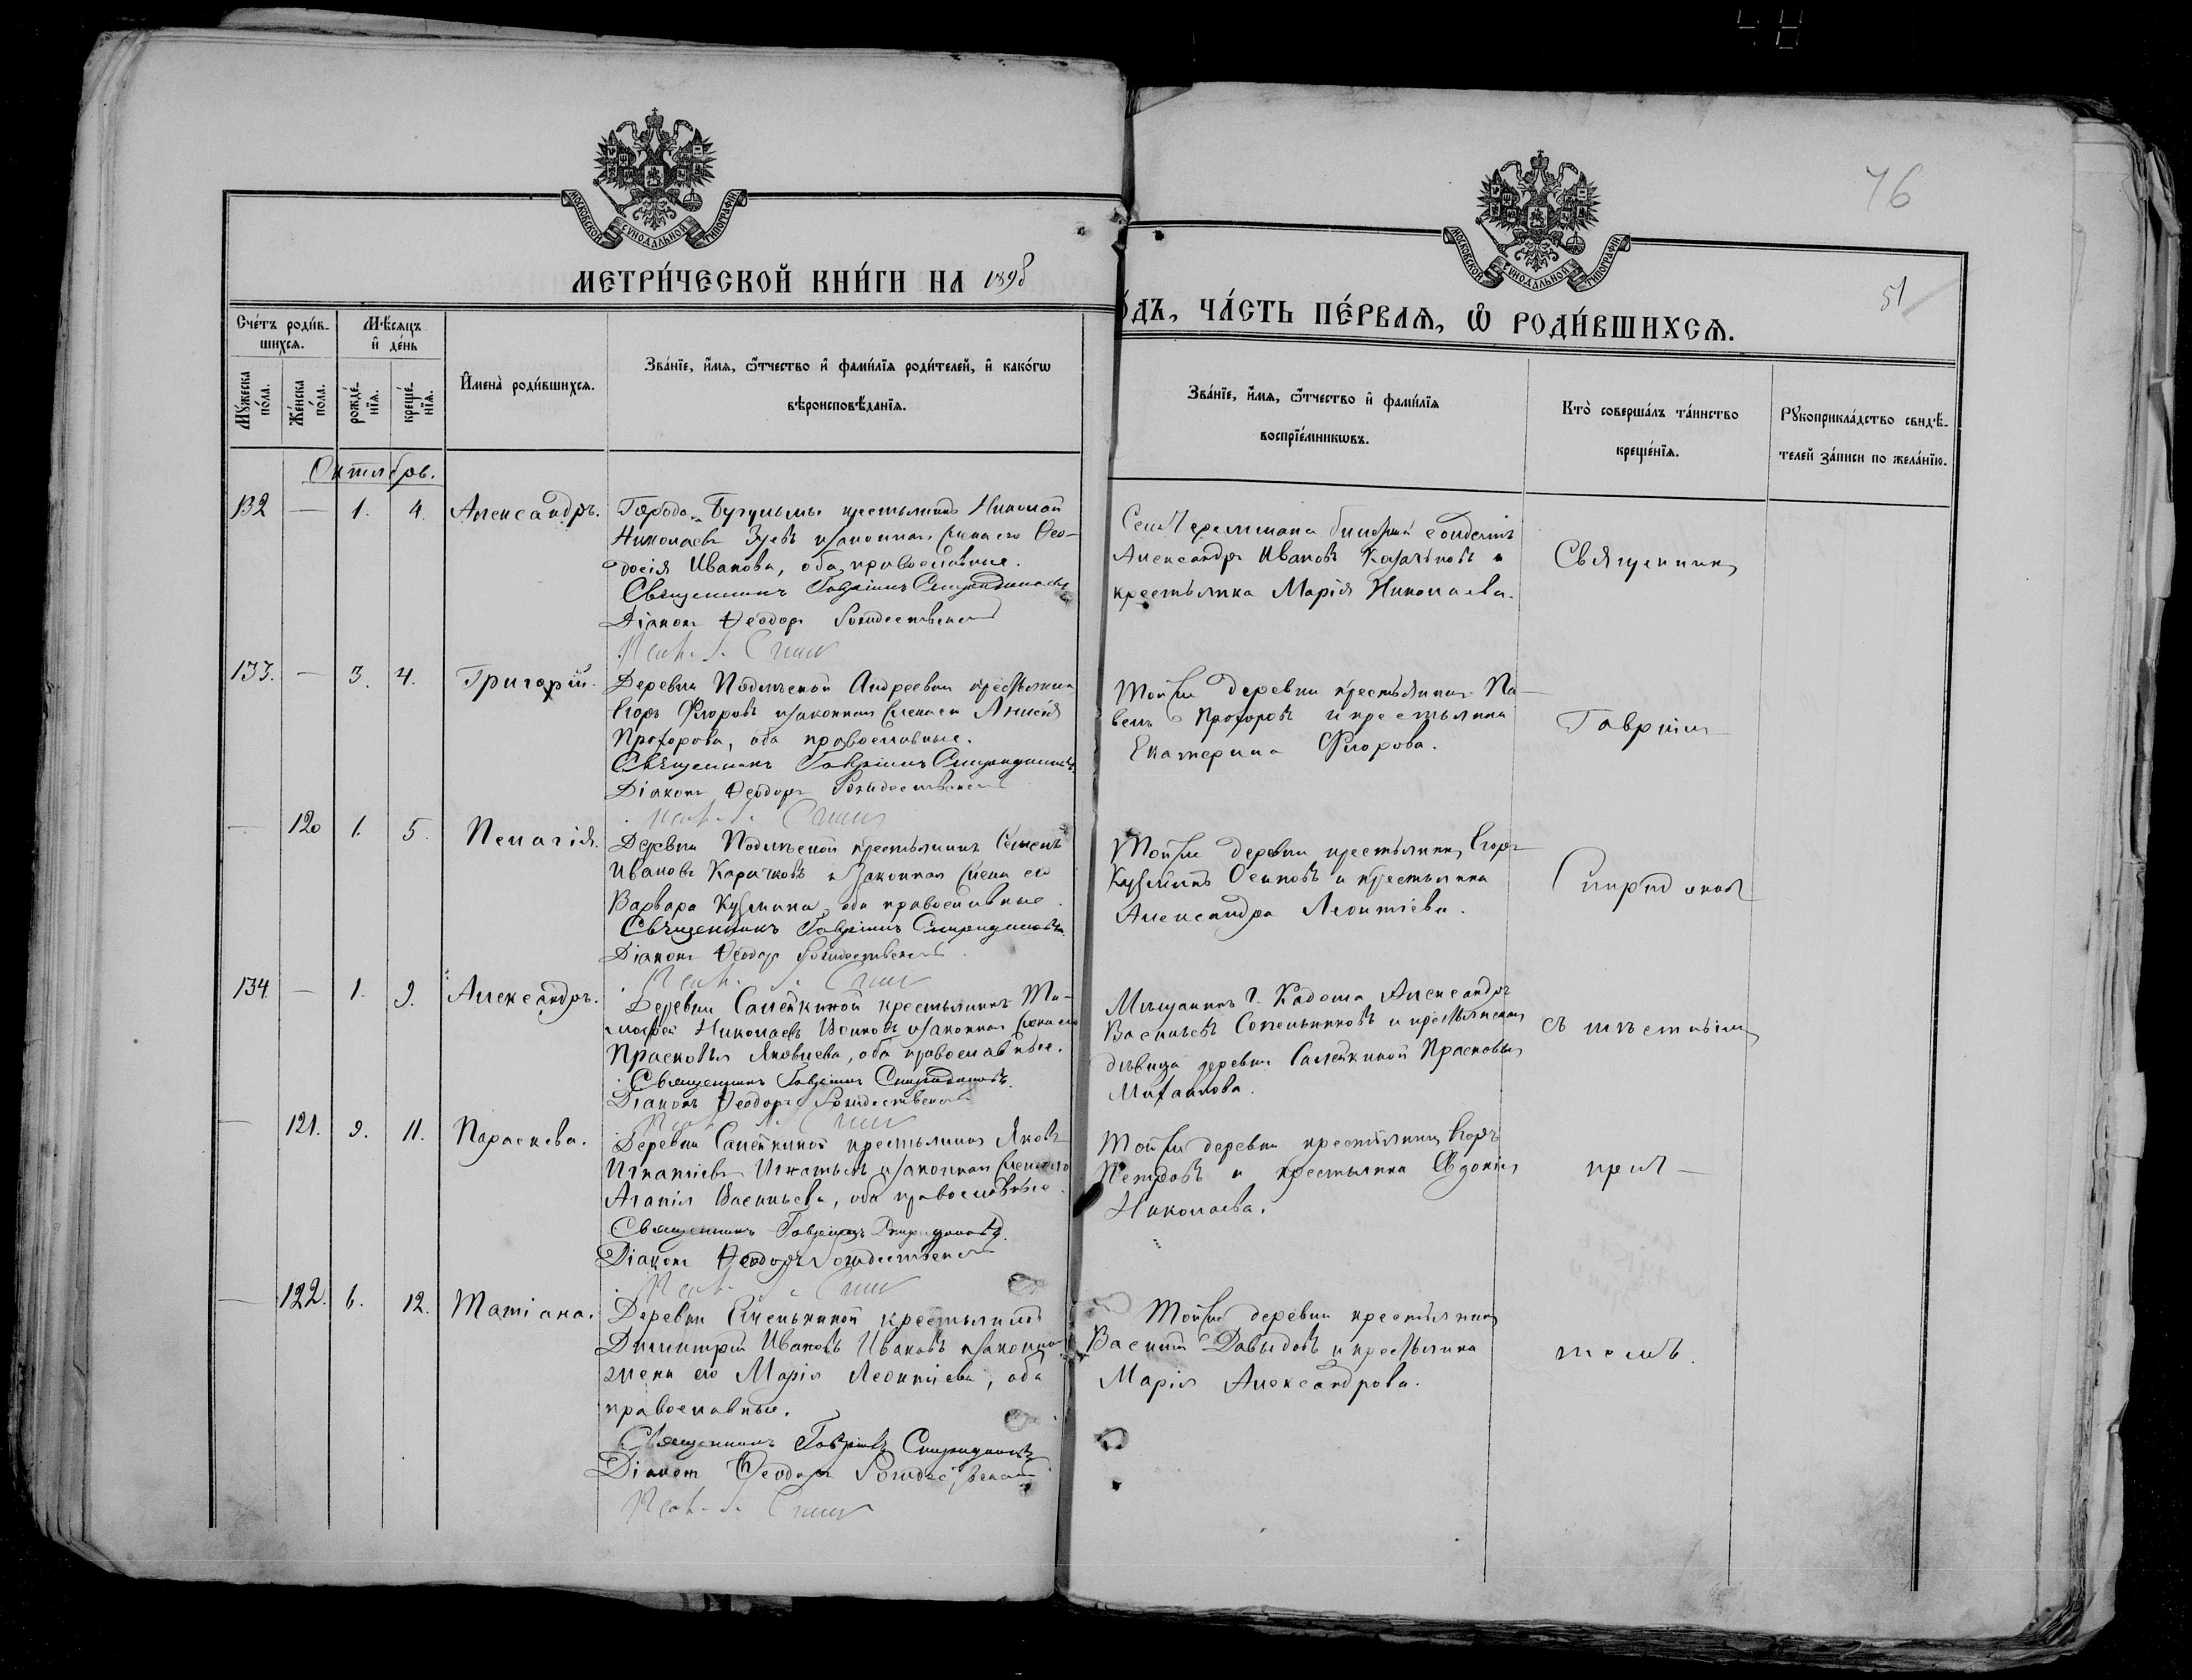 76
51
МОСКОВСКОЙ СУНОДАЛЬНОЙ ТИПОГРАФІИ
МОСКОВСКОЙ СУНОДАЛЬНОЙ ТИПОГРАФІИ
МЕТРИ́ЧЕСКОЙ КНИ́ГИ НА 1898
О́ДЪ, ЧА́СТЬ ПЕ́РВАЯ, Ѡ РОДИ́ВШИХСЯ.
Сче́тъ роди́в-
шихся.
Мѣ́сяцъ
и де́нь
Мꙋжеска по́ла.
Же́нска по́ла.
рожде́-
нїя.
креще́-
нїя.
Имена̀ роди́вшихся.
Зва́нїе, и́мя, ѻ́тчество и фами́лїя роди́телей, и како́гѡ
вѣроисповѣ́данїя.
Зва́нїе, и́мя, ѻ́тчество и фами́лїя
воспрїе́мникѡвъ.
Кто̀ соверша́лъ та́инство
креще́нїя.
Рꙋкоприкла́дство свидѣ́-
телей за́писи по жела́нїю.
Октябрь.
132 — 1. 4. Александръ.
Города Бугульмы крестьянинъ Николай
Николаевъ и законная жена его Ѳео-
досія Иванова, оба православные.
Священникъ Гавріилъ Спиридоновъ
Діаконъ Ѳеодоръ Рождественскій
Александръ Ивановъ Казачковъ и
крестьянка Марія Николаева.
Священникъ
133. — 3. 4. Григорій.
Деревни Подлѣсной Андреевки крестьянинъ
Егоръ Флоровъ и законная жена его
Прохорова, оба православные.
Священникъ Гавріилъ Спиридоновъ
Діаконъ Ѳеодоръ Рождественскій
Той же деревни крестьянинъ Па-
велъ Прохоровъ и крестьянка
Екатерина Флорова.
Гавріилъ
— 120 1. 5. Пелагія.
Деревни Подлѣсной крестьянинъ Семенъ
Ивановъ Карачковъ и законная жена его
Варвара Кузмина, оба православные.
Священникъ Гавріилъ Спиридоновъ
Діаконъ Ѳеодоръ Рождественскій
Той же деревни крестьянинъ Егоръ
Кузминъ Осиповъ и крестьянка
Александра Леонтіева.
Спиридоновъ
134 — 1. 9. Александръ.
Деревни Салейкиной крестьянинъ Ти-
моѳей Николаевъ и законная жена его
Прасковья Яковлева, оба православные.
Священникъ Гавріилъ Спиридоновъ
Діаконъ Ѳеодоръ Рождественскій
Мѣщанинъ г. Кадома Александръ
Васильевъ и крестьянская
дѣвица деревни Салейкиной Прасковья
Михаилова.
съ мѣстнымъ
— 121. 9. 11. Параскева.
Деревни Салейкиной крестьянинъ Яковъ
Игнатіевъ Игнатьевъ и законная жена его
Агапія Васильева, оба православные.
Священникъ Гавріилъ Спиридоновъ
Діаконъ Ѳеодоръ Рождественскій
Той же деревни крестьянинъ Егоръ
Петровъ и крестьянка Евдокія
Николаева.
прич—
— 122. 6. 12. Татіана.
Деревни крестьянинъ
Димитрій Ивановъ Ивановъ и законная
жена его Марія Леонтіева, оба
православные.
Священникъ Гавріилъ Спиридоновъ
Діаконъ Ѳеодоръ Рождественскій
Той же деревни крестьянинъ
Василій Давыдовъ и крестьянка
Марія Александрова.
томъ.